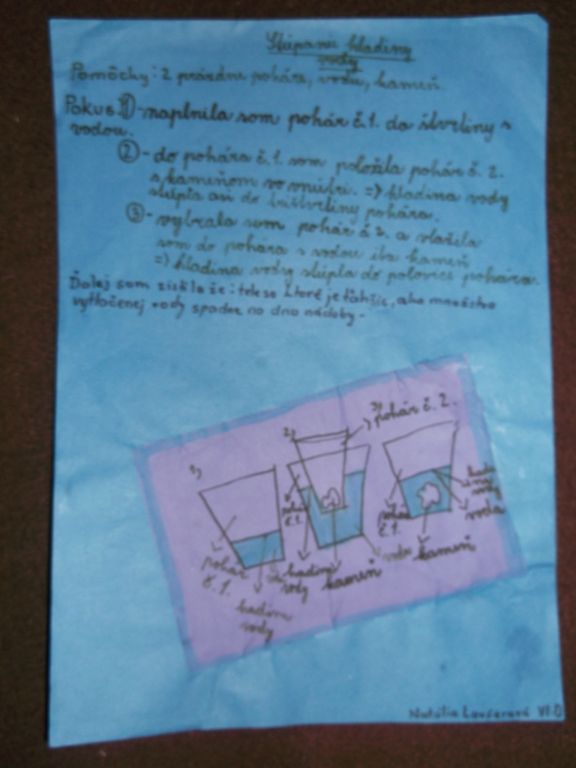 Stúpanie hladiny
vody
Pomôcky: 2 prázdne poháre, vodu, kameň.
Pokus: ① - naplnila som pohár č.1. do štvrtiny s
vodou.
② - do pohára č.1. som položila pohár č. 2.
s kameňom vo vnútri. => hladina vody
stúpla až do trištvrtiny pohára.
③ - vybrala som pohár č 2. a vložila
som do pohára s vodou iba kameň
=> hladina vody stúpla do polovice pohára.
Ďalej som zistila že: teleso ktoré je ťahšie, ako množstvo
vytlačenej vody spadne na dno nádoby.
1)
2)
3)
pohár č. 2.
pohár
č. 1.
hladina
vody
pohár
č.1.
hladina
vody
kameň
voda
pohár
č.1.
kameň
voda
Natália VI.D